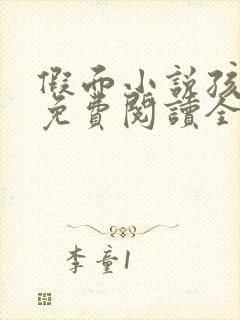 假面小説孩
免費閱讀全
李童1